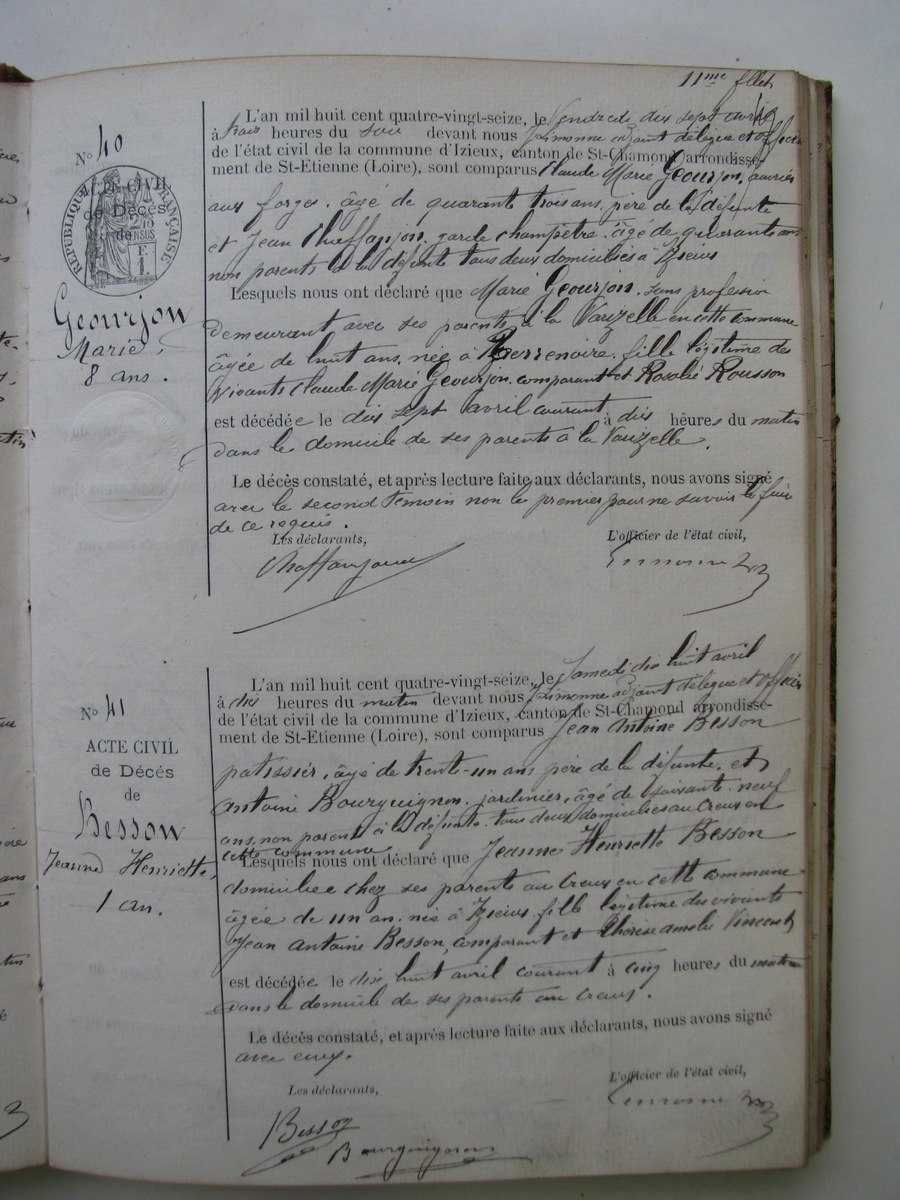 11me fllet
No 40
ACTE CIVIL
de Décès
de
RÉPUBLIQUE FRANÇAISE
Geourjon
Marie,
8 ans.
L'an mil huit cent quatre-vingt-seize, le Vendredi dix sept avril
à trois heures du soir devant nous Limonne adjoint délégué et officier
de l'état civil de la commune d'Izieux, canton de St-Chamond arrondisse-
ment de St-Etienne (Loire), sont comparus Claude Marie Geourjon, ouvrier
aux forges, âgé de quarante trois ans, père de la défunte
et Jean Chaffanjon, garde champêtre, âgé de quarante ans
non parents à la défunte tous deux domiciliés à Izieux
Lesquels nous ont déclaré que Marie Geourjon, sans profession
demeurant avec ses parents, à la Varizelle en cette commune
âgée de huit ans, née à Terrenoire, fille légitime des
vivants Claude Marie Geourjon, comparant et Rosalie Rousson
est décédée le dix sept avril courant à dix heures du matin
dans le domicile de ses parents à la Varizelle.
Le décès constaté, et après lecture faite aux déclarants, nous avons signé
avec le second témoin non le premier pour ne savoir le faire
de ce requis.
Les déclarants, L'officier de l'état civil,
Chaffanjon
No 41
ACTE CIVIL
de Décés
de
Besson
Jeanne Henriette,
1 an.
L'an mil huit cent quatre-vingt-seize, le Samedi dix huit avril
à dix heures du matin devant nous Limonne adjoint délégué et officier
de l'état civil de la commune d'Izieux, canton de St-Chamond arrondisse-
ment de St-Etienne (Loire), sont comparus Jean Antoine Besson
patissier, âgé de trente-un ans père de la défunte, et
Antoine Bourguignon, jardinier, âgé de soixante neuf
ans, non parents à la défunte, tous deux domiciliés au Creux en
cette commune
Lesquels nous ont déclaré que Jeanne Henriette Besson
domiciliée chez ses parents au Creux en cette commune
âgée de un an, née à Izieux, fille légitime des vivants
Jean Antoine Besson, comparant et Thérèse Amélie Vincent
est décédée le dix huit avril courant à cinq heures du matin
dans le domicile de ses parents au Creux.
Le décès constaté, et après lecture faite aux déclarants, nous avons signé
avec eux.
Les déclarants, L'officier de l'état civil,
Besson
Bourguignon